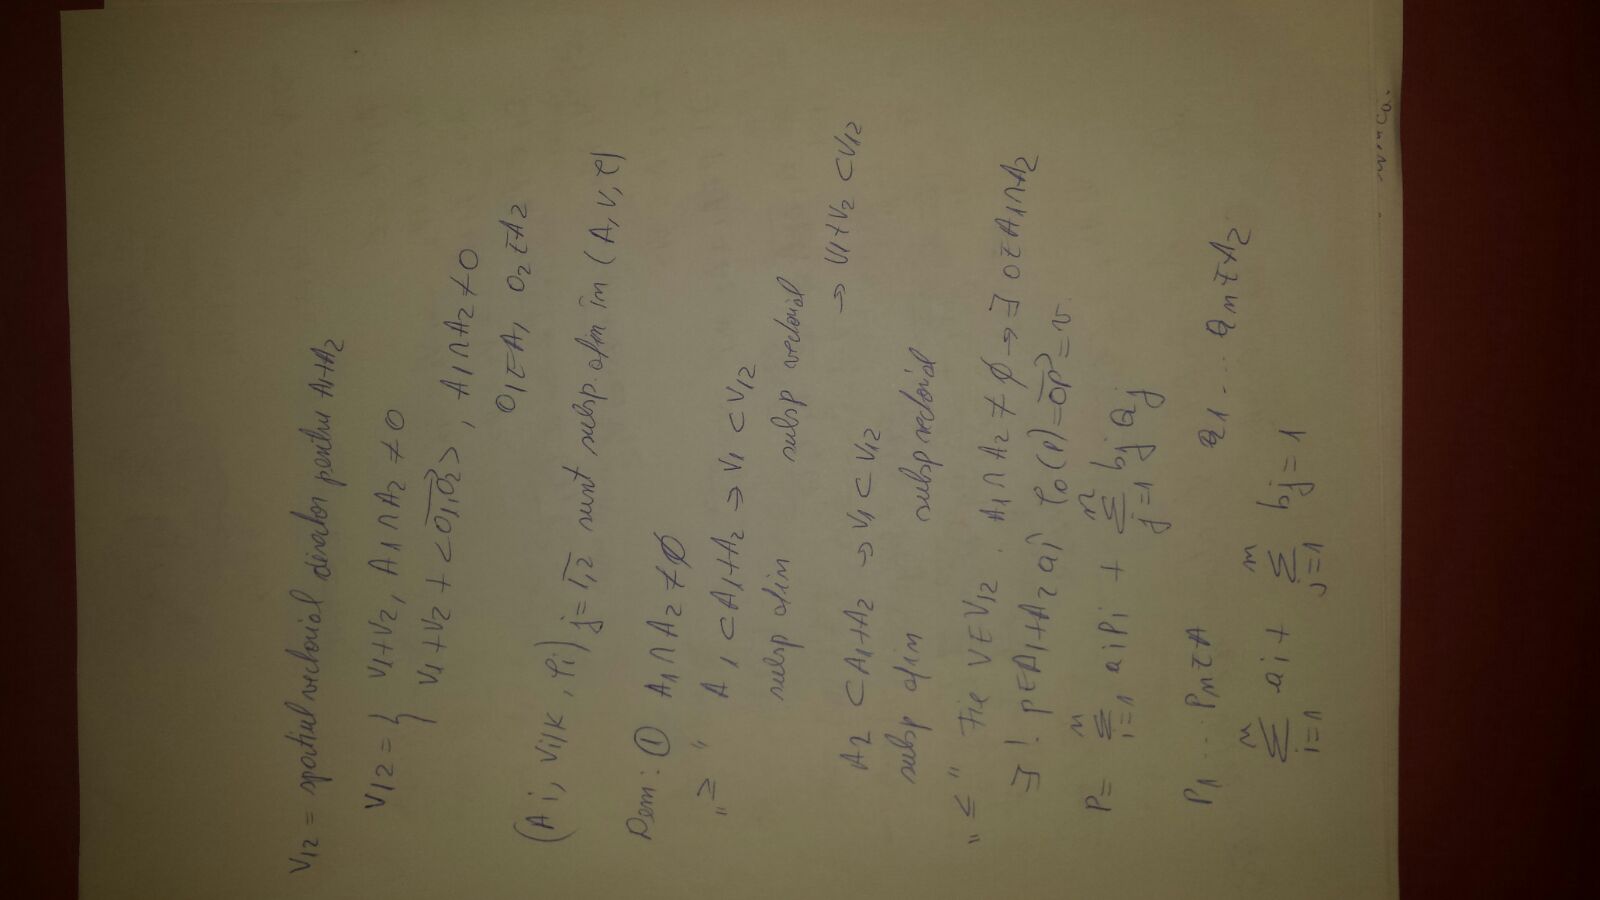 V12 = spatiul vectorial director pentru A1+A2
V12 = { V1+V2, A1∩A2 ≠ 0
V1+V2 + <O1,O2>, A1∩A2 ≠ 0
O1∈A1 O2∈A2
(Ai, Vi/K, φi) j=1,2 sunt subsp. afim în (A, V, φ)
Dem: ① A1∩A2 ≠ ∅
"≥" A1 ⊂ A1+A2 → V1 ⊂ V12
subsp afim subsp vectorial
A2 ⊂ A1+A2 → V1 ⊂ V12 → V1+V2 ⊂ V12
subsp afim subsp vectorial
"≤" Fie V∈V12. A1∩A2 ≠ ∅ → ∃ O∈A1∩A2
∃! P∈A1+A2 aî φo(P) = OP = v.
P = Σ i=1 n aiPi + Σ j=1 m bjQj
P1 ... Pn∈A Q1 ... Qm∈A2
Σ i=1 n ai + Σ j=1 m bj = 1